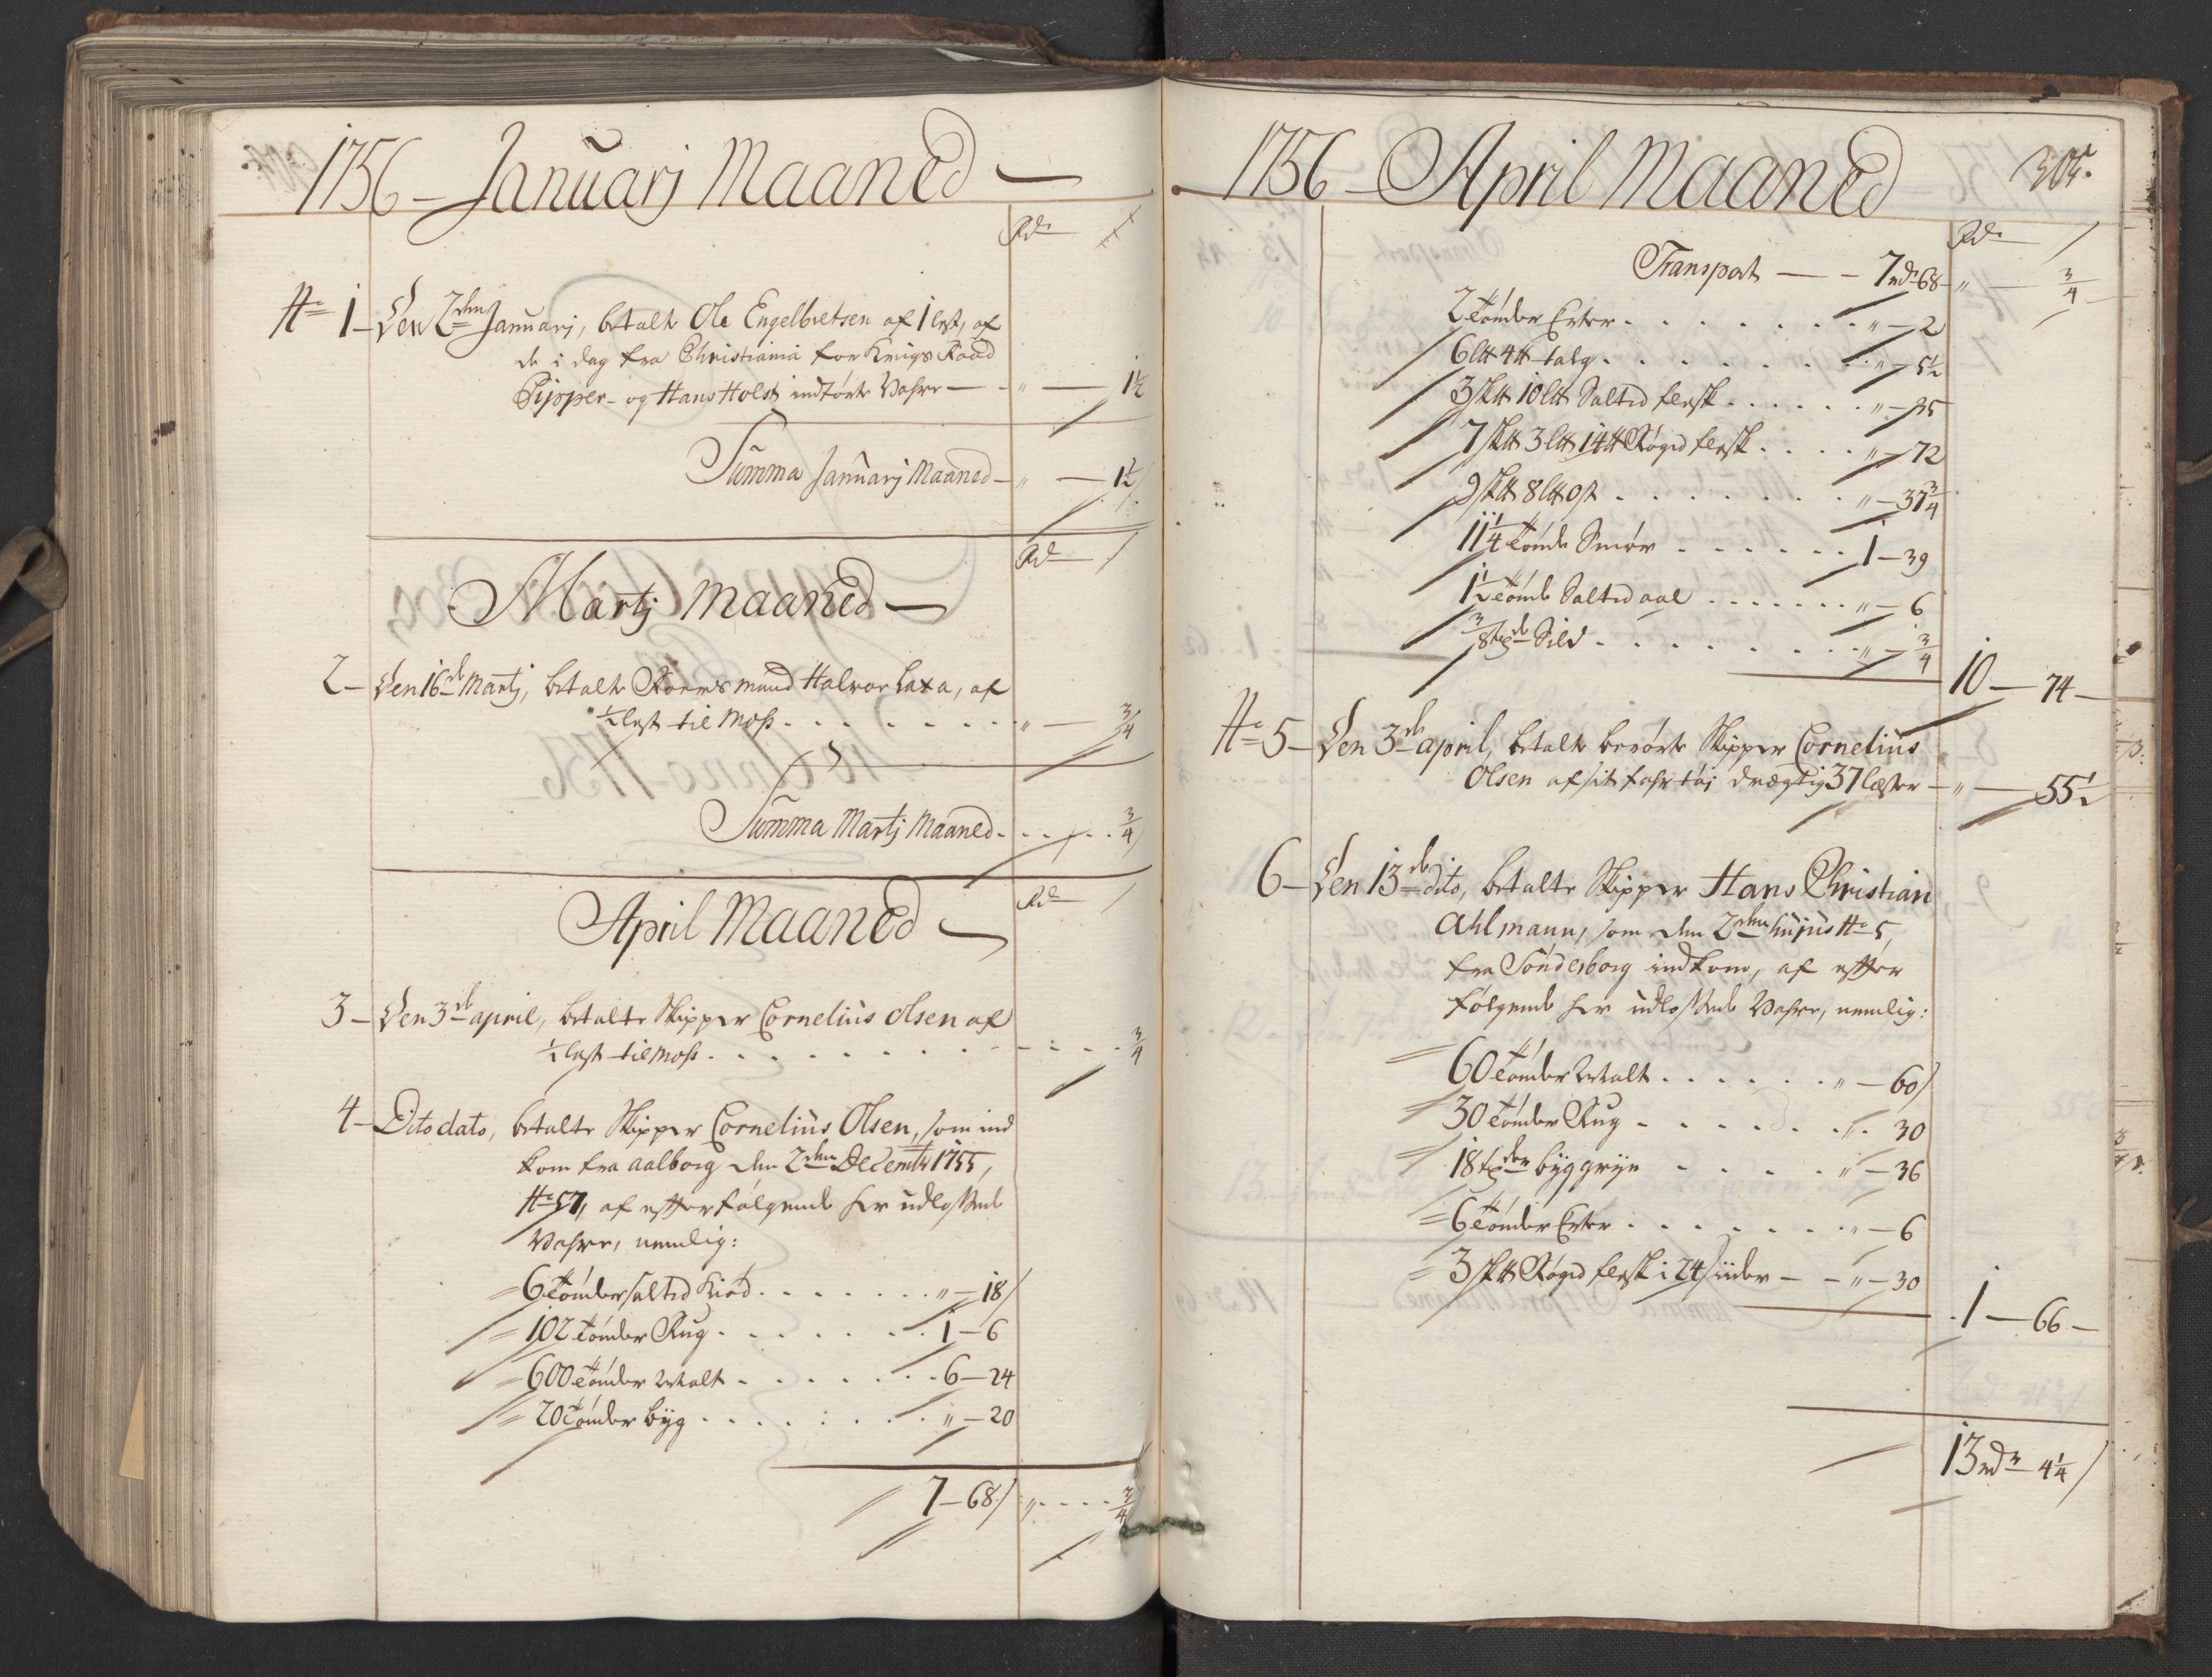 1756 – Januarj Maaned –
Rdr ß
No 1 – Den 2den Januarj, betalte Ole Engelbretsen af 1 lest, af
de i dag fra Christiania for Krigs Raad
Pipper – og Hans Holst indførte Vahre — „ — 1½
Summa Januarj Maaned – „ — 1½
Rdr ß
Martj Maaned –
2 – Den 16de Martj, betalte Halvor Laxa, af
½ lest til Moss . . . . . . . „ — ¾
Summa Martj Maaned . . . . . ¾
April Maaned –
Rdr ß
3 – Den 3de april, betalte Skipper Cornelius Olsen af
½ lest til Moss . . . . . . . . . – . – . . ¾
4 – Dito dato, betalte Skipper Cornelius Olsen, som ind
kom fra Aalborg den 2den Decembr 1755,
No 57, af efterfølgende her udlossede
Vahre, nemlig:
6 tønder salted Kiød . . . . . . . „ – 18
102 tønder Rug . . . . . . . 1 – 6
600 tønder Malt . . . . . . . 6 – 24
20 tønder byg . . . . : . . . „ – 20
7 – 68 „ . . . . ¾
1756 – April Maaned
305.
Rdr ß
Transport — – 7 rdr 68 – „ — ¾
2 tønder Erter . . . . . . . „ – 2
6 L℔ 4 ℔ talg . . . . . . . „ – 5½
3 sk℔ 10 L℔ Salted flesk . . . . . . „ – 35
7 sk℔ 3 L℔ 14 ℔ Røged flesk . . . . „ – 72
9 sk℔ 8 L℔ ost . . . . . . . „ – 37¾
11¼ tønde Smør . . . . . . 1 – 39
1½ tønde Salted aal . . . . . . . „ – 6
⅜ tønde Sild . . . . . . . . „ – ¾
10 — 74 –
No 5 – Den 3de april, betalte berørte Skipper Cornelius
Olsen af sit fahrtøj drægtig 37 læster – „ — 55½
6 – Den 13de dito, betalte Skipper Hans Christian
Ahlmann, som den 2den hujus No 5,
fra Sønderborg indkom, af efter
følgende her udlossede Vahre, nemlig:
60 tønder Malt . . . . . . „ – 60
30 tønder Rug – . . . . . . „ . 30
18 tønder byggryn . . . . . „ – 36
6 tønder Erter . . . . . . . „ – 6
3 sk℔ Røged flesk i 24 sider – – „ – 30
1 — 66 –
13 rdr – 4¼